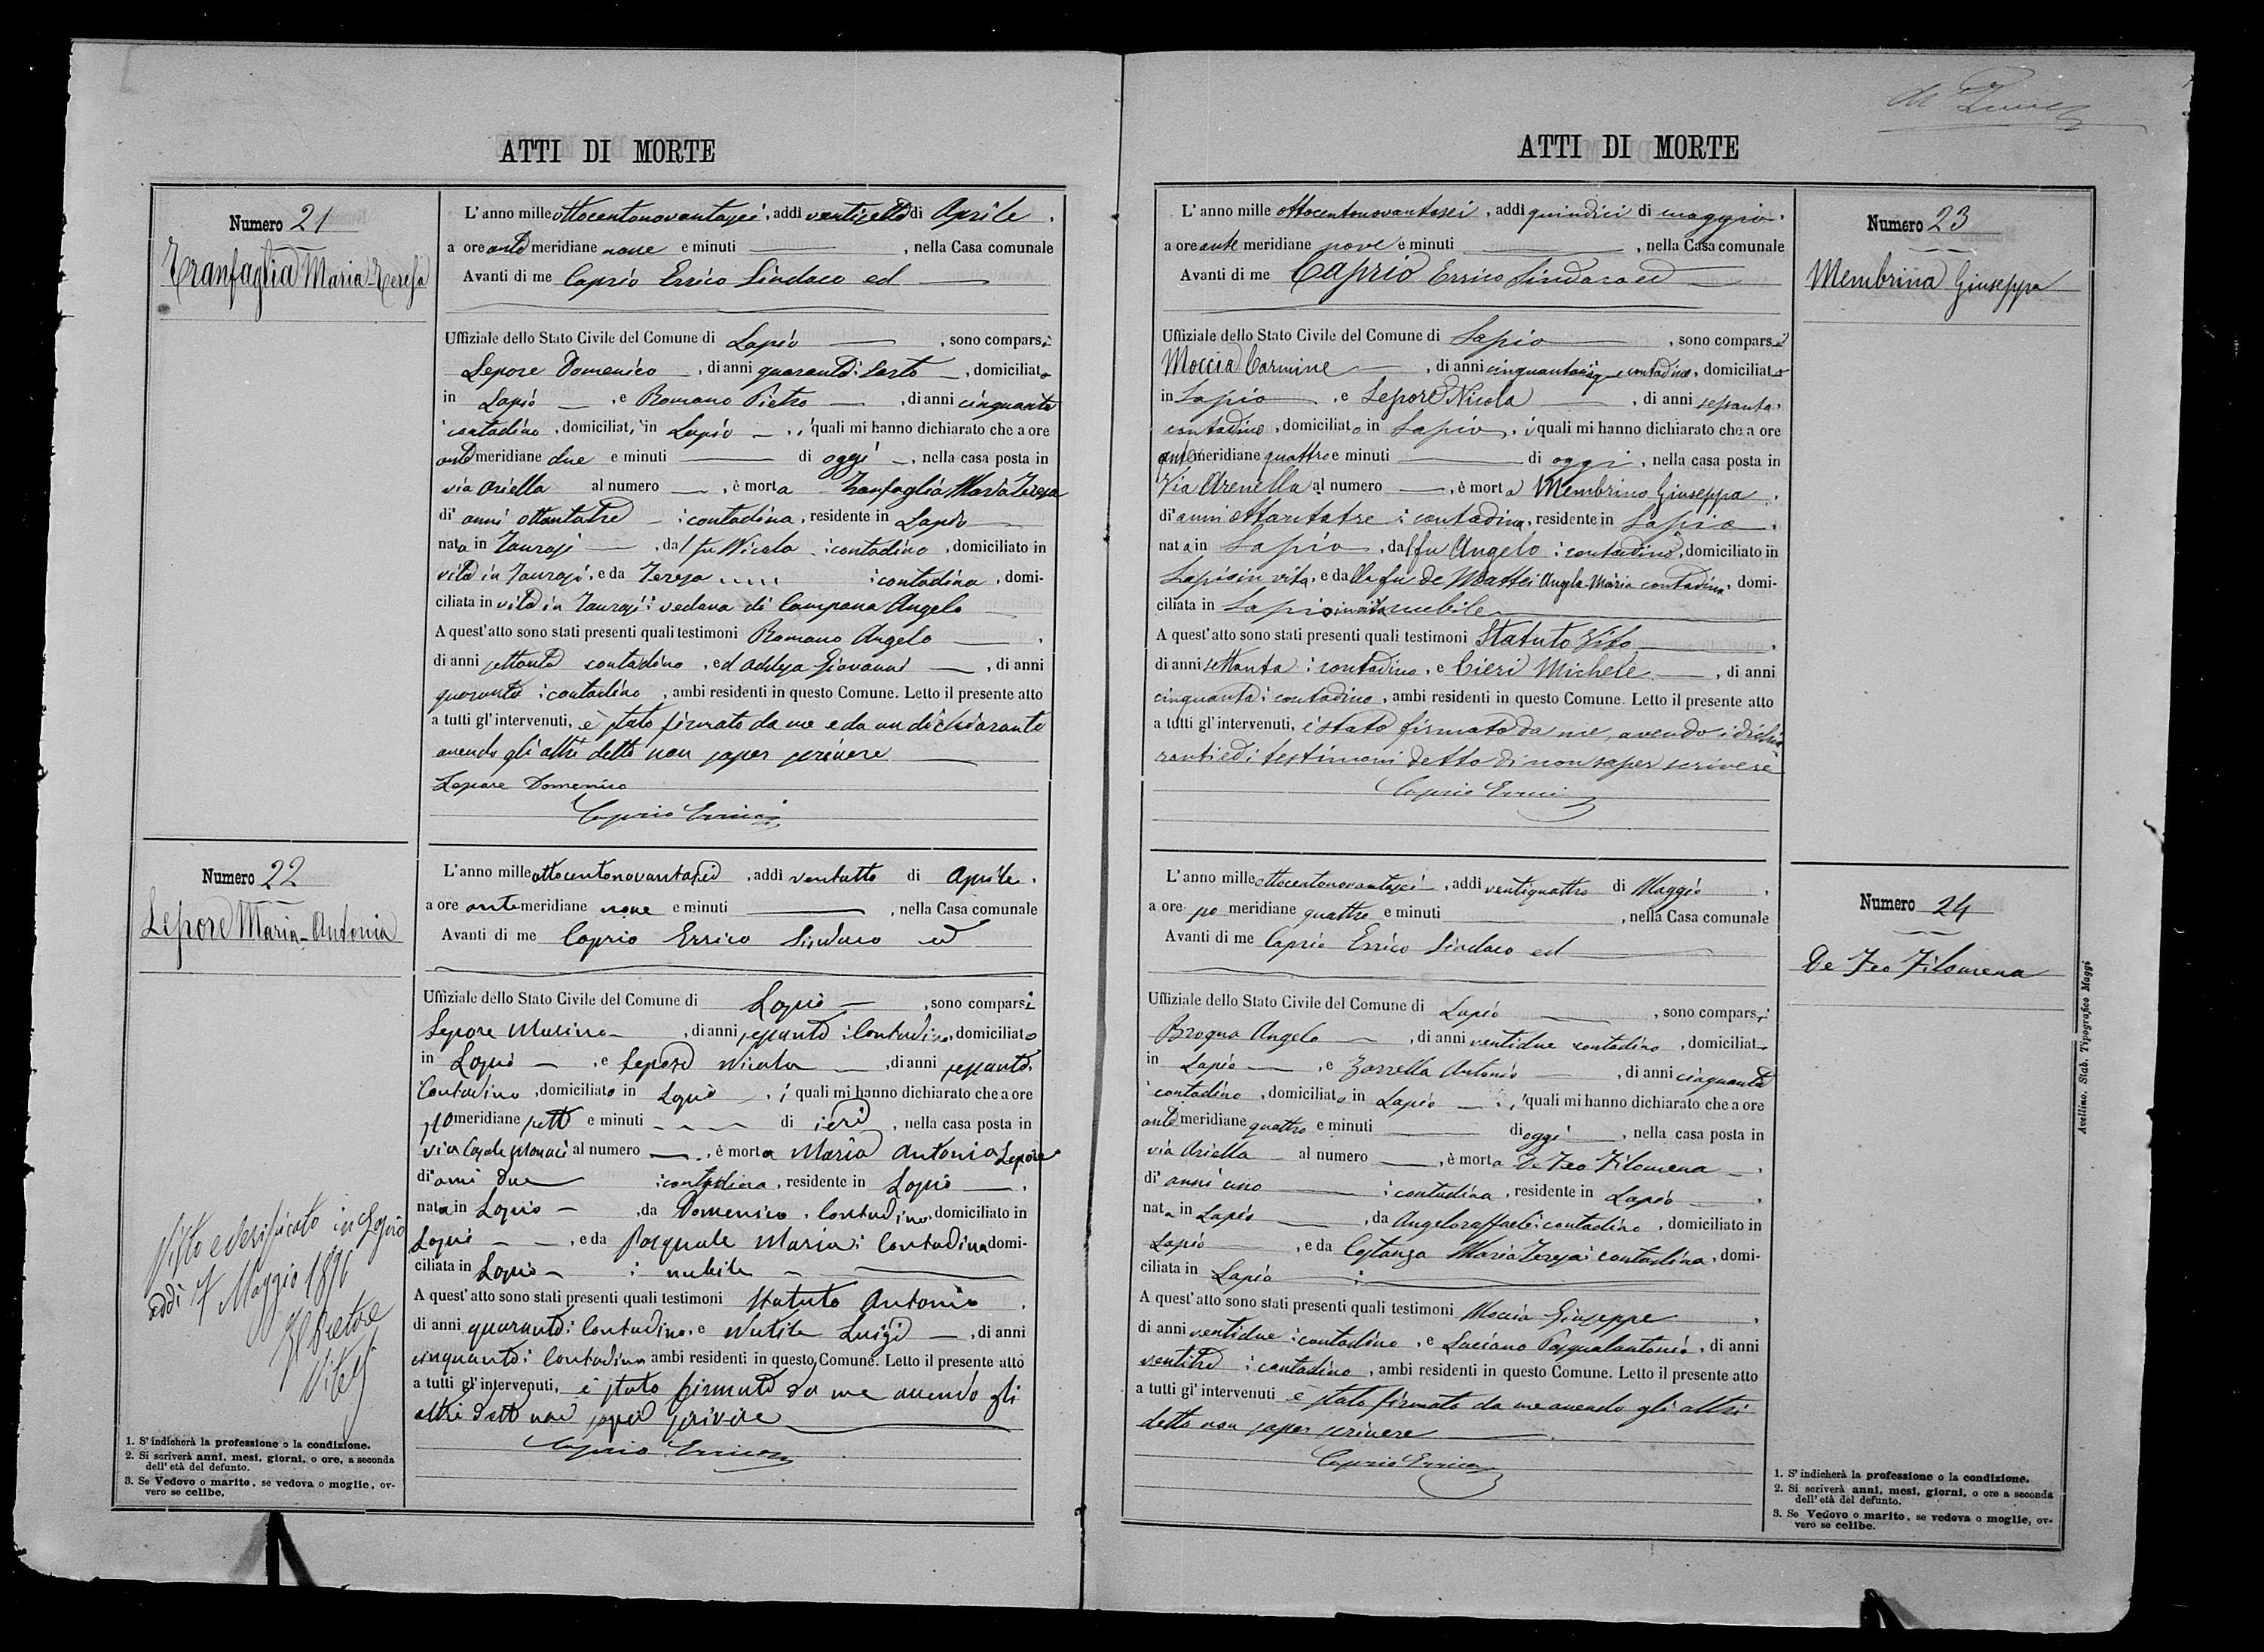 ATTI DI MORTE
Numero 21
Tranfaglia Maria Teresa
L'anno mille ottocentonovantasei, addì ventisette di Aprile,
a ore ante meridiane nove e minuti , nella Casa comunale
Avanti di me Caprio Errico Sindaco ed
Uffiziale dello Stato Civile del Comune di Lapio , sono comparsi
Lepore Domenico , di anni quaranta: sarto , domiciliato
in Lapio , e Romano Pietro , di anni cinquanta
contadino , domiciliato in Lapio , i quali mi hanno dichiarato che a ore
ante meridiane due e minuti di oggi , nella casa posta in
via Ariella al numero , è morta Tranfaglia Maria Teresa
di anni ottantatre : contadina, residente in Lapio
nata in Taurasi , dal fu Nicola : contadino , domiciliato in
vita in Taurasi, e da Teresa .... : contadina , domi-
ciliata in vita in Taurasi: vedova di Campana Angelo
A quest'atto sono stati presenti quali testimoni Romano Angelo ,
di anni settanta contadino , ed Addesa Giovanni , di anni
quaranta : contadino , ambi residenti in questo Comune. Letto il presente atto
a tutti gl'intervenuti, è stato firmato da me e da un dichiarante
avendo gli altri detto non saper scrivere
Lepore Domenico
Caprio Errico
Numero 22
Lepore Maria-Antonia
L'anno mille ottocentonovantasei , addì ventotto di Aprile,
a ore antemeridiane nove e minuti , nella Casa comunale
Avanti di me Caprio Errico Sindaco ed
Uffiziale dello Stato Civile del Comune di Lapio , sono comparsi
Lepore , di anni : Contadino, domiciliato
in Lapio , e Lepore Nicola , di anni
Contadino , domiciliato in Lapio , i quali mi hanno dichiarato che a ore
po meridiane sette e minuti di ieri , nella casa posta in
via Casale Monaci al numero , è morta Maria Antonia Lepore
di anni due : contadina, residente in Lapio ,
nata in Lapio , da Domenico : Contadino, domiciliato in
Lapio , e da Pasquale Maria: Contadina domi-
ciliata in Lapio : nubile
A quest'atto sono stati presenti quali testimoni Statuto Antonio ,
di anni quaranta: Contadino, e Nutile Luigi , di anni
cinquanta: Contadino ambi residenti in questo Comune. Letto il presente atto
a tutti gl'intervenuti, è stato firmato da me avendo gli
altri detto non saper scrivere
Caprio Errico
Visto e verificato in Lapio
addì 7 Maggio 1896
Il Pretore
1. S'indicherà la professione o la condizione.
2. Si scriverà anni, mesi, giorni, o ore, a seconda
dell'età del defunto.
3. Se Vedovo o marito, se vedova o moglie, ov-
vero se celibe.
ATTI DI MORTE
Numero 23
Membrina Giuseppa
L'anno mille ottocentonovantasei , addì quindici di maggio,
a ore ante meridiane nove e minuti , nella Casa comunale
Avanti di me Caprio Errico Sindaco ed
Uffiziale dello Stato Civile del Comune di Lapio , sono comparsi
Moccia Carmine , di anni cinquantacinque contadino, domiciliato
in Lapio , e Lepore Nicola , di anni
contadino , domiciliato in Lapio , i quali mi hanno dichiarato che a ore
antemeridiane quattro e minuti di oggi , nella casa posta in
Via Arenella al numero , è morta Membrino Giuseppa ,
di anni ottantatre : contadina, residente in Lapio ,
nata in Lapio , dal fu Angelo : contadino, domiciliato in
Lapio in vita, e dalla fu de Mattei Angela Maria contadina, domi-
ciliata in Lapio in vita nubile
A quest'atto sono stati presenti quali testimoni Statuto Vito ,
di anni settanta : contadino, e Cieri Michele , di anni
cinquanta: contadino, ambi residenti in questo Comune. Letto il presente atto
a tutti gl'intervenuti, è stato firmato da me, avendo i dichia-
ranti ed i testimoni detto di non saper scrivere
Caprio Errico
Numero 24
De Feo Filomena
L'anno mille ottocentonovantasei , addì ventiquattro di Maggio ,
a ore po meridiane quattro e minuti , nella Casa comunale
Avanti di me Caprio Errico Sindaco ed
Uffiziale dello Stato Civile del Comune di Lapio , sono comparsi
Brogna Angelo , di anni ventidue contadino , domiciliato
in Lapio , e Zarrella Antonio , di anni cinquanta
contadino , domiciliato in Lapio , i quali mi hanno dichiarato che a ore
ante meridiane quattro e minuti di oggi , nella casa posta in
via Ariella al numero , è morta De Feo Filomena ,
di anni uno : contadina , residente in Lapio ,
nata in Lapio , da Angeloraffaele: contadino , domiciliato in
Lapio , e da Costanza Maria Teresa: contadina, domi-
ciliata in Lapio :
A quest'atto sono stati presenti quali testimoni Moccia Giuseppe ,
di anni ventidue : contadino , e Luciano Pasqualantonio, di anni
ventitre : contadino , ambi residenti in questo Comune. Letto il presente atto
a tutti gl'intervenuti è stato firmato da me avendo gli altri
detto non saper scrivere
Caprio Errico
1. S'indicherà la professione o la condizione.
2. Si scriverà anni, mesi, giorni, o ore a seconda
dell'età del defunto.
3. Se Vedovo o marito, se vedova o moglie, ov-
vero se celibe.
Avellino, Stab. Tipografico Maggi